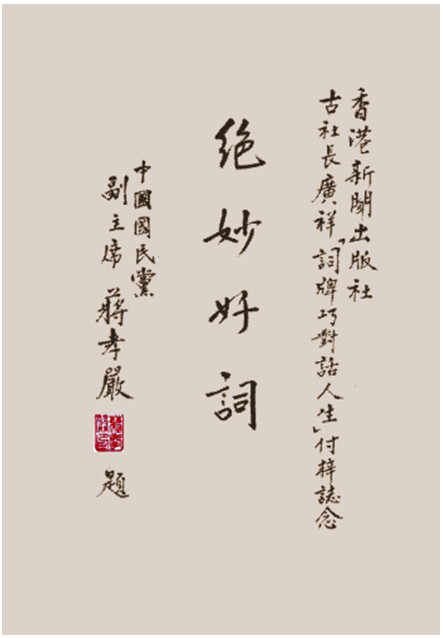 香港新聞出版社
古社長廣祥「詞牌巧對話人生」付梓誌念
絶妙好詞
中國國民黨
副主席 蔣孝嚴
題